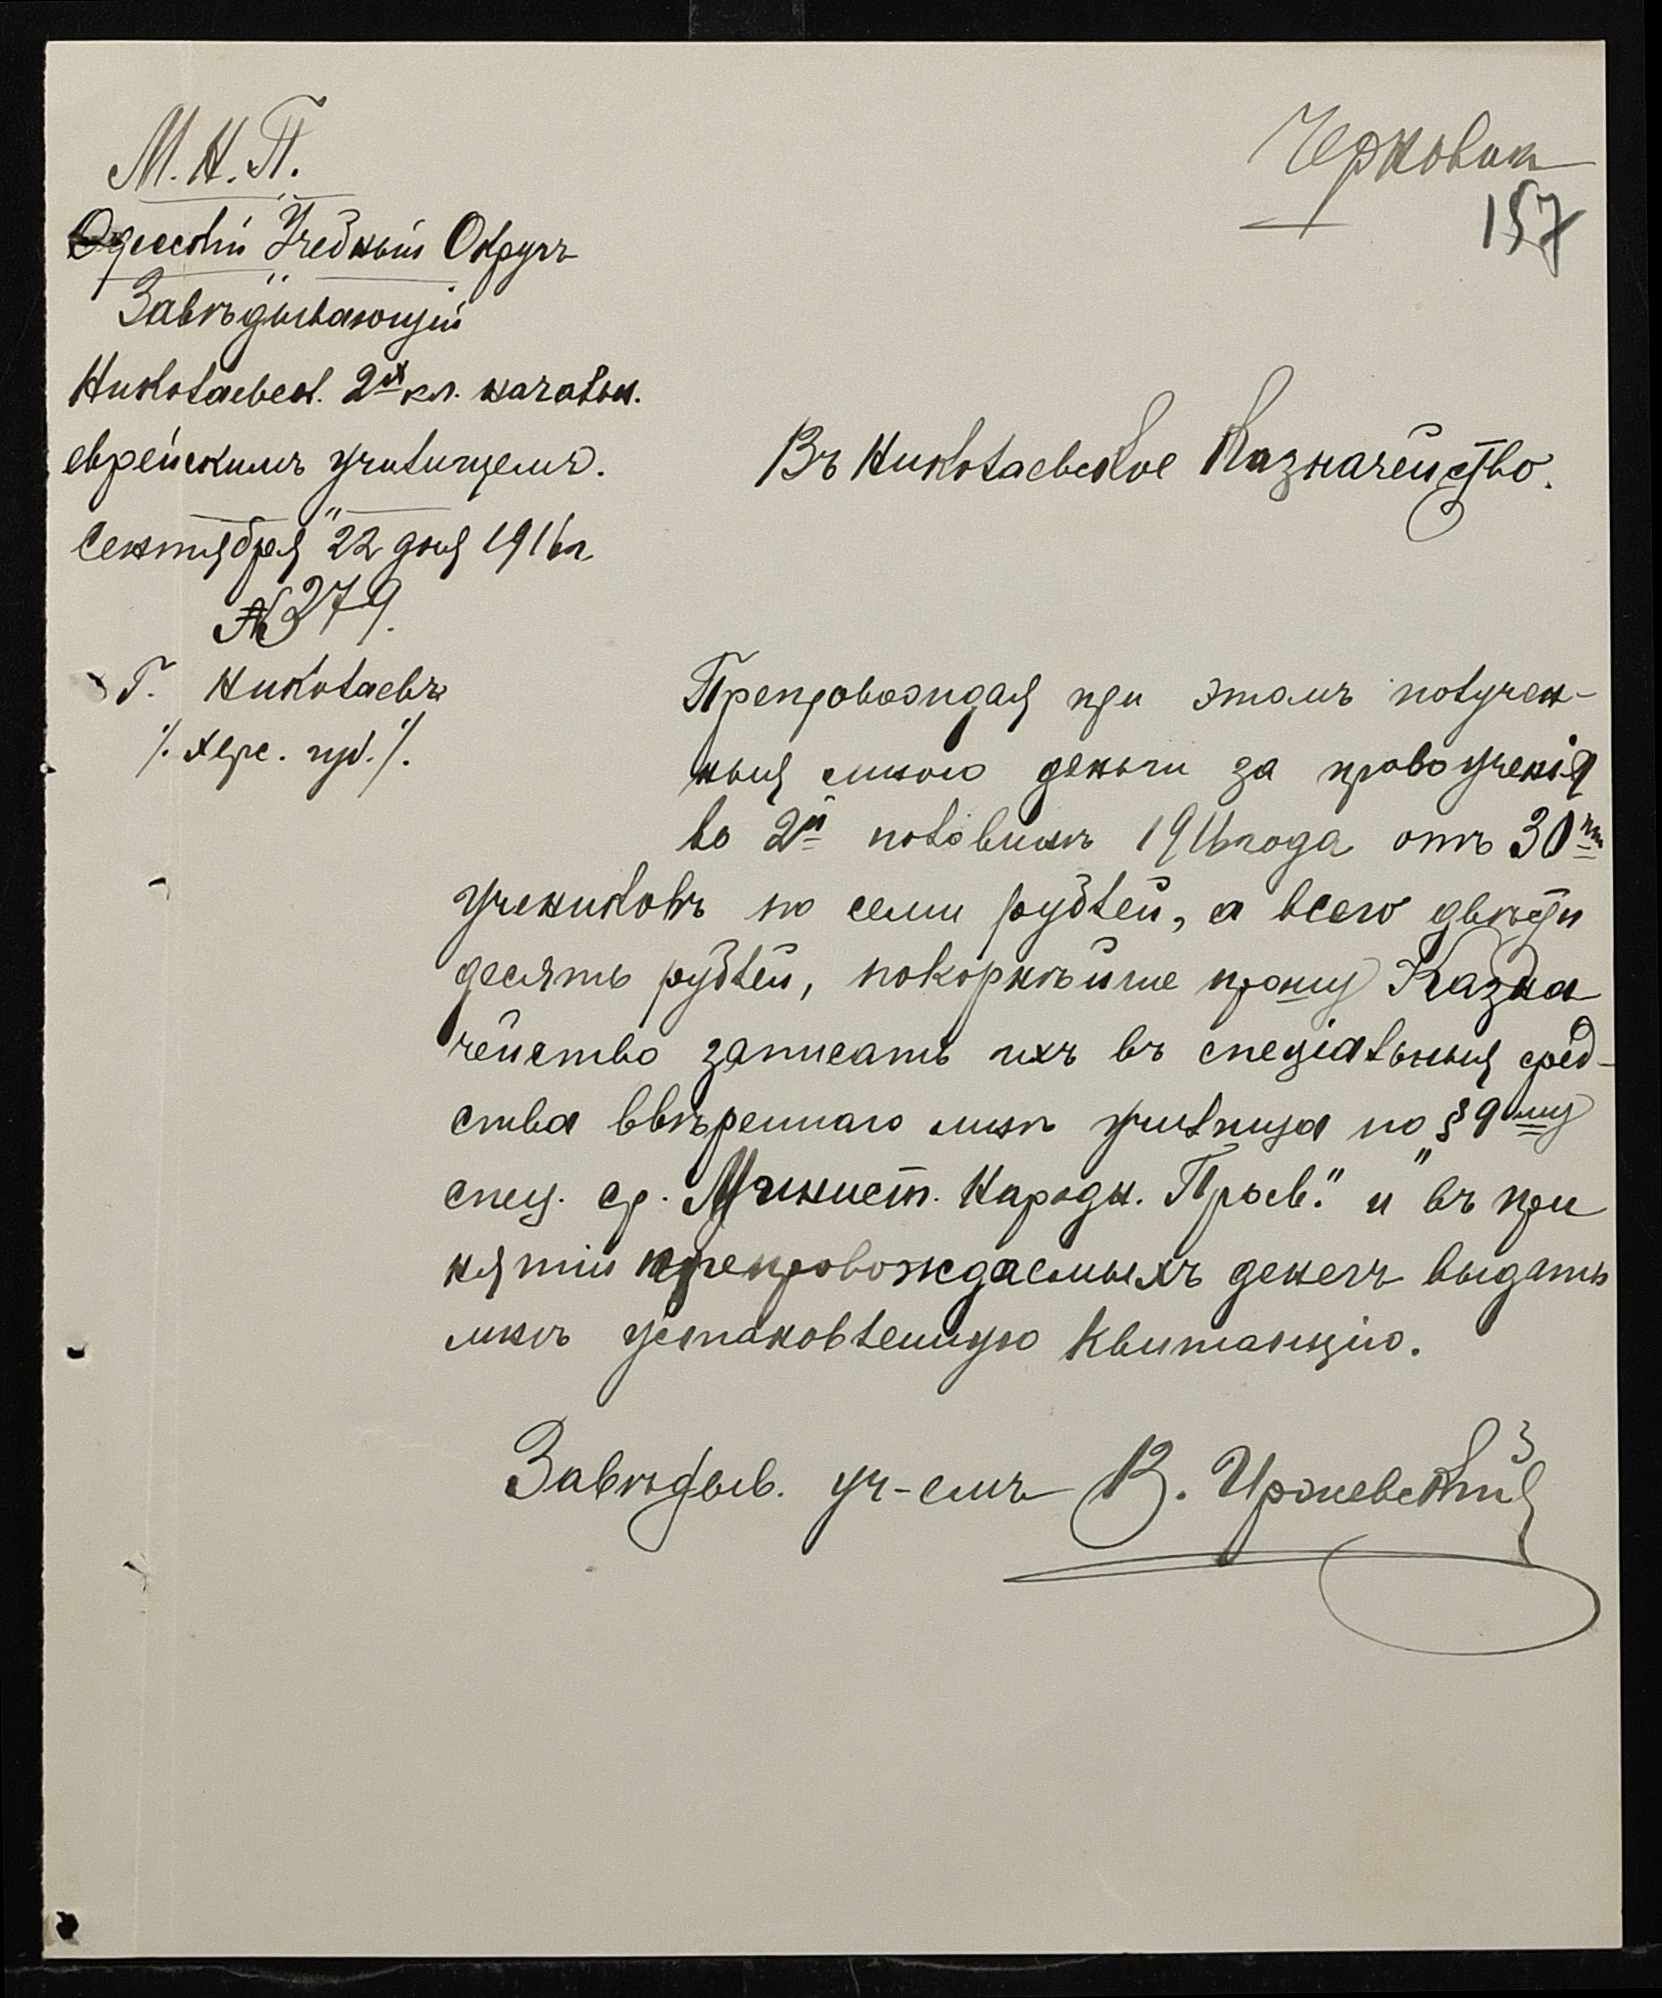 М. Н. П.
Одесскій Учебный Округъ
Завѣдывающій
Николаевск. 2х кл. начальн.
еврейскимъ училищемъ.
Сентября 22 дня 1916 г.
№ 279.
Г. Николаевъ
/. Херс. губ. /.
Черновик
157
Въ Николаевское Казначейство.
Препровождая при этомъ получен-
ныя мною деньги за право ученія
во 2й половинѣ 1916 года отъ 30ти
учениковъ по семи рублей, а всего двѣсти
десять рублей, покорнѣйше прошу Казна
чейство записать ихъ въ спеціальныя сред-
ства ввѣреннаго мнѣ училища по § 9му
спец. ср. Министр. Народн. Просв." и "въ при
нятіи препровождаемыхъ денегъ выдать
мнѣ установленную квитанцію.
Завѣдыв. уч-емъ В. Иржевскій